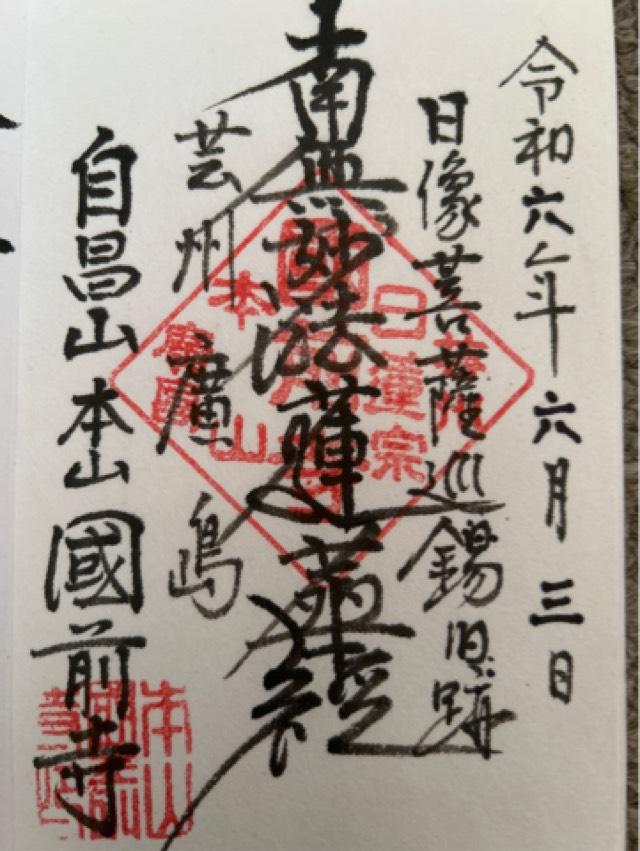 令和六年六月三日
日像菩薩巡錫旧跡
南無妙法蓮華経
芸州廣島
自昌山本山國前寺
日蓮宗
國前寺
本山
本山